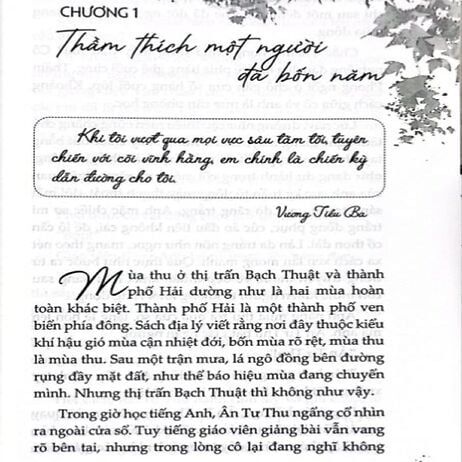 CHƯƠNG 1
Thầm thích một người
đã bốn năm
Khi tôi vượt qua mọi vực sâu tăm tối, tuyên
chiến với cõi vĩnh hằng, em chính là chiến kỳ
dẫn đường cho tôi.
Vương Tiểu Ba
Mùa thu ở thị trấn Bạch Thuật và thành
phố Hải dường như là hai mùa hoàn
toàn khác biệt. Thành phố Hải là một thành phố ven
biển phía đông. Sách địa lý viết rằng nơi đây thuộc kiểu
khí hậu gió mùa cận nhiệt đới, bốn mùa rõ rệt, mùa thu
là mùa thu. Sau một trận mưa, lá ngô đồng bên đường
rụng đầy mặt đất, như thể báo hiệu mùa đang chuyển
mình. Nhưng thị trấn Bạch Thuật thì không như vậy.
Trong giờ học tiếng Anh, Ân Tự Thu ngẩng cổ nhìn
ra ngoài cửa sổ. Tuy tiếng giáo viên giảng bài vẫn vang
rõ bên tai, nhưng trong lòng cô lại đang nghĩ không